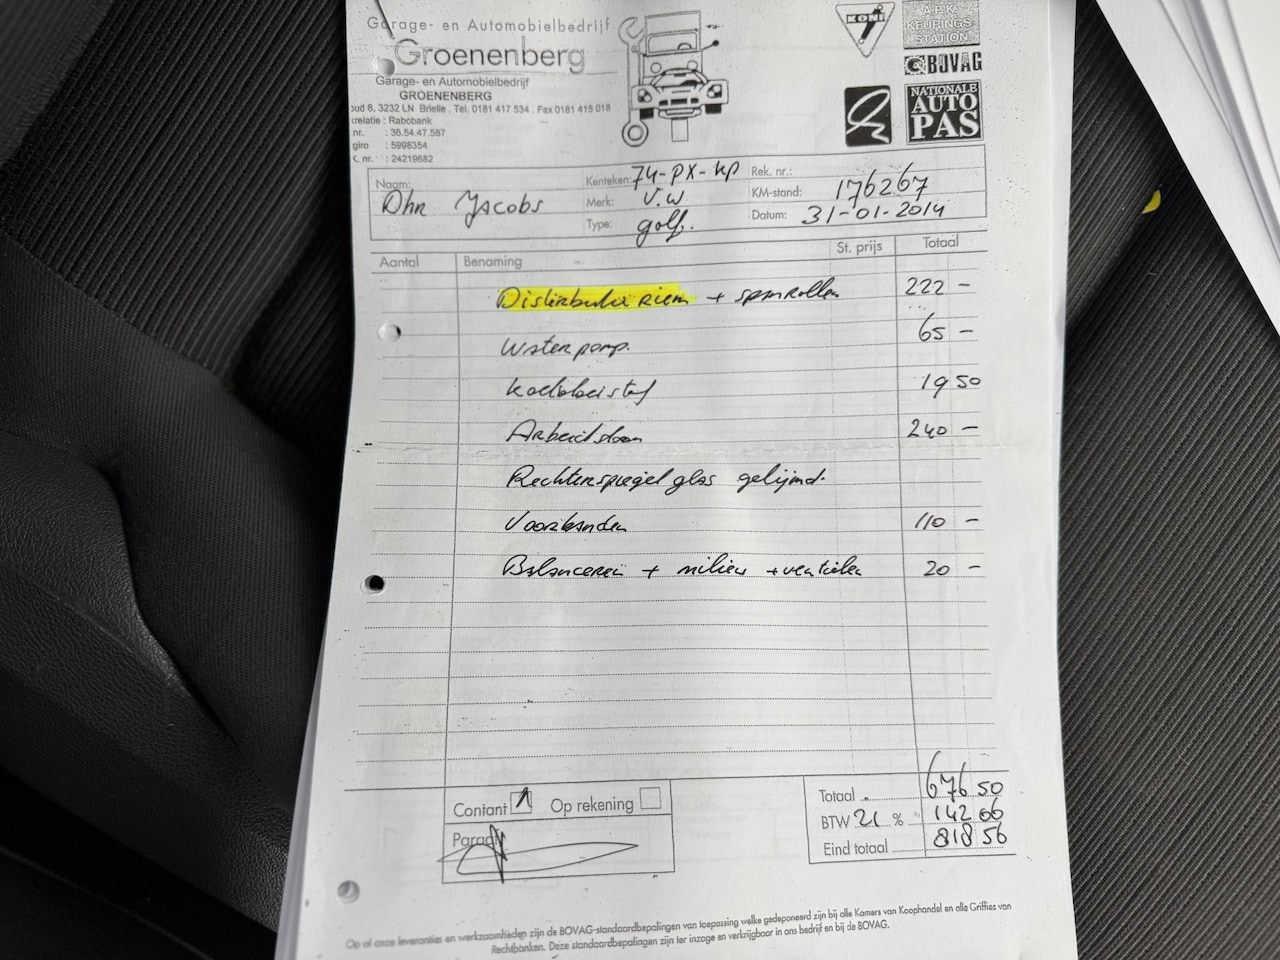 Garage- en Automobielbedrijf
Groenenberg
Garage- en Automobielbedrijf
GROENENBERG
oud 8, 3232 LN Brielle. Tel. 0181 417 534 . Fax 0181 415 018
krelatie : Rabobank
nr. : 36.54.47.587
giro : 5998354
K. nr. : 24219682
KONI
A.P.K.
KEURINGS-
STATION
BOVAG
NATIONALE
AUTO
PAS
Naam: Dhr Jacobs
Kenteken: 74-PX-KP
Merk: V.W
Type: golf.
Rek. nr.:
KM-stand: 176267
Datum: 31-01-2014
Aantal Benaming St. prijs Totaal
Distributie Riem + spanrollen 222 -
Waterpomp. 65 -
koelvloeistof 19 50
Arbeidsloon 240 -
Rechterspiegel glas gelijmd.
Voorbanden 110 -
Balanceren + milieu + ventielen 20 -
Contant Op rekening
Paraaf
Totaal 676 50
BTW 21 % 142 06
Eind totaal 818 56
Op al onze leveranties en werkzaamheden zijn de BOVAG-standaardbepalingen van toepassing welke gedeponeerd zijn bij alle Kamers van Koophandel en alle Griffies van
Rechtbanken. Deze standaardbepalingen zijn ter inzage en verkrijgbaar in ons bedrijf en bij de BOVAG.